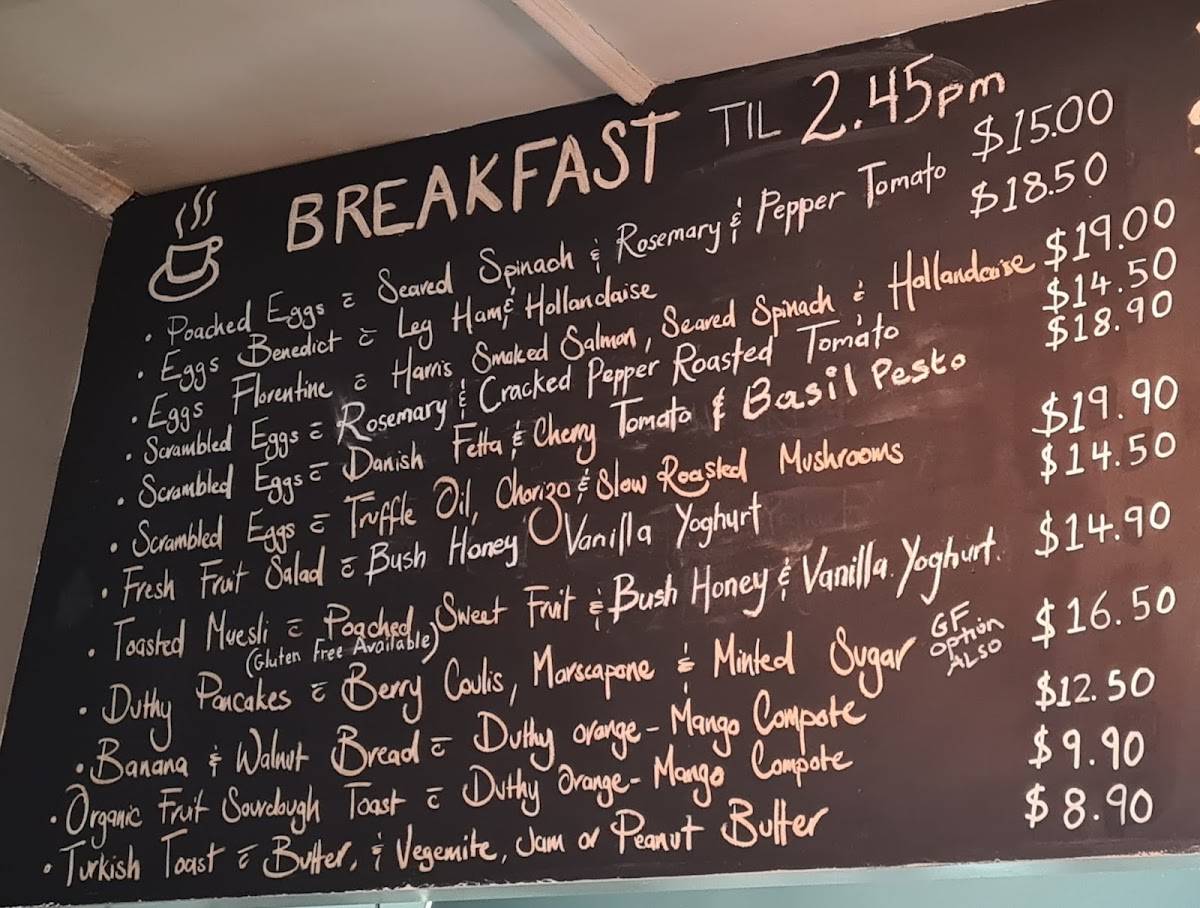 BREAKFAST TIL 2.45pm
• Poached Eggs c̄ Seared Spinach & Rosemary & Pepper Tomato $15.00
• Eggs Benedict c̄ Leg Ham & Hollandaise $18.50
• Eggs Florentine c̄ Harris Smoked Salmon, Seared Spinach & Hollandaise $19.00
• Scrambled Eggs c̄ Rosemary & Cracked Pepper Roasted Tomato $14.50
• Scrambled Eggs c̄ Danish Fetta & Cherry Tomato & Basil Pesto $18.90
• Scrambled Eggs c̄ Truffle Oil, Chorizo & Slow Roasted Mushrooms $19.90
• Fresh Fruit Salad c̄ Bush Honey Vanilla Yoghurt $14.50
• Toasted Muesli c̄ Poached Sweet Fruit & Bush Honey & Vanilla Yoghurt. $14.90
(Gluten Free Available)
• Duthy Pancakes c̄ Berry Coulis, Marscapone & Minted Sugar GF OPTION ALSO $16.50
• Banana & Walnut Bread c̄ Duthy orange - Mango Compote $12.50
• Organic Fruit Sourdough Toast c̄ Duthy Orange - Mango Compote $9.90
• Turkish Toast c̄ Butter, & Vegemite, Jam or Peanut Butter $8.90